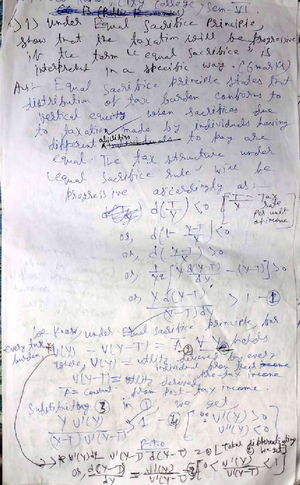 College / Sem - VI
(Public Economics)
1) Under Equal Sacrifice Principle,
show that the taxation will be progressive
if the term "equal sacrifice" is
interpreted in a specific way (6 marks)
Ans: Equal Sacrifice principle states that
distribution of tax burden conforms to
vertical equity when sacrifices due
to taxation made by individuals having
different abilities to pay are
equal. The tax structure under
equal sacrifice rule will be
progressive accordingly as:
d(T/Y) < 0
[T/Y = Tax rate per unit of income]
or, d(1 - (Y-T)/Y) < 0
or, d((Y-T)/Y) > 0
or, 1/Y² [Y d(Y-T)/dY - (Y-T)] > 0
or, Y d(Y-T)/dY / (Y-T) > 1 - ①
We know, under Equal sacrifice principle, for
every tax burden U(Y) - U(Y-T) = A
where, U(Y) = utility derived by every
individual from their income
U(Y-T) = utility derived
A = constant from post-tax income
Substituting ③ in ①, we get,
Y U'(Y) / (Y-T) U'(Y-T) > 1 - ④
U'(Y) > 0
U''(Y) < 0
U'(Y)dY - U'(Y-T) d(Y-T) = 0 [Total differentiating
or, d(Y-T)/dY = U'(Y)/U'(Y-T) - ③